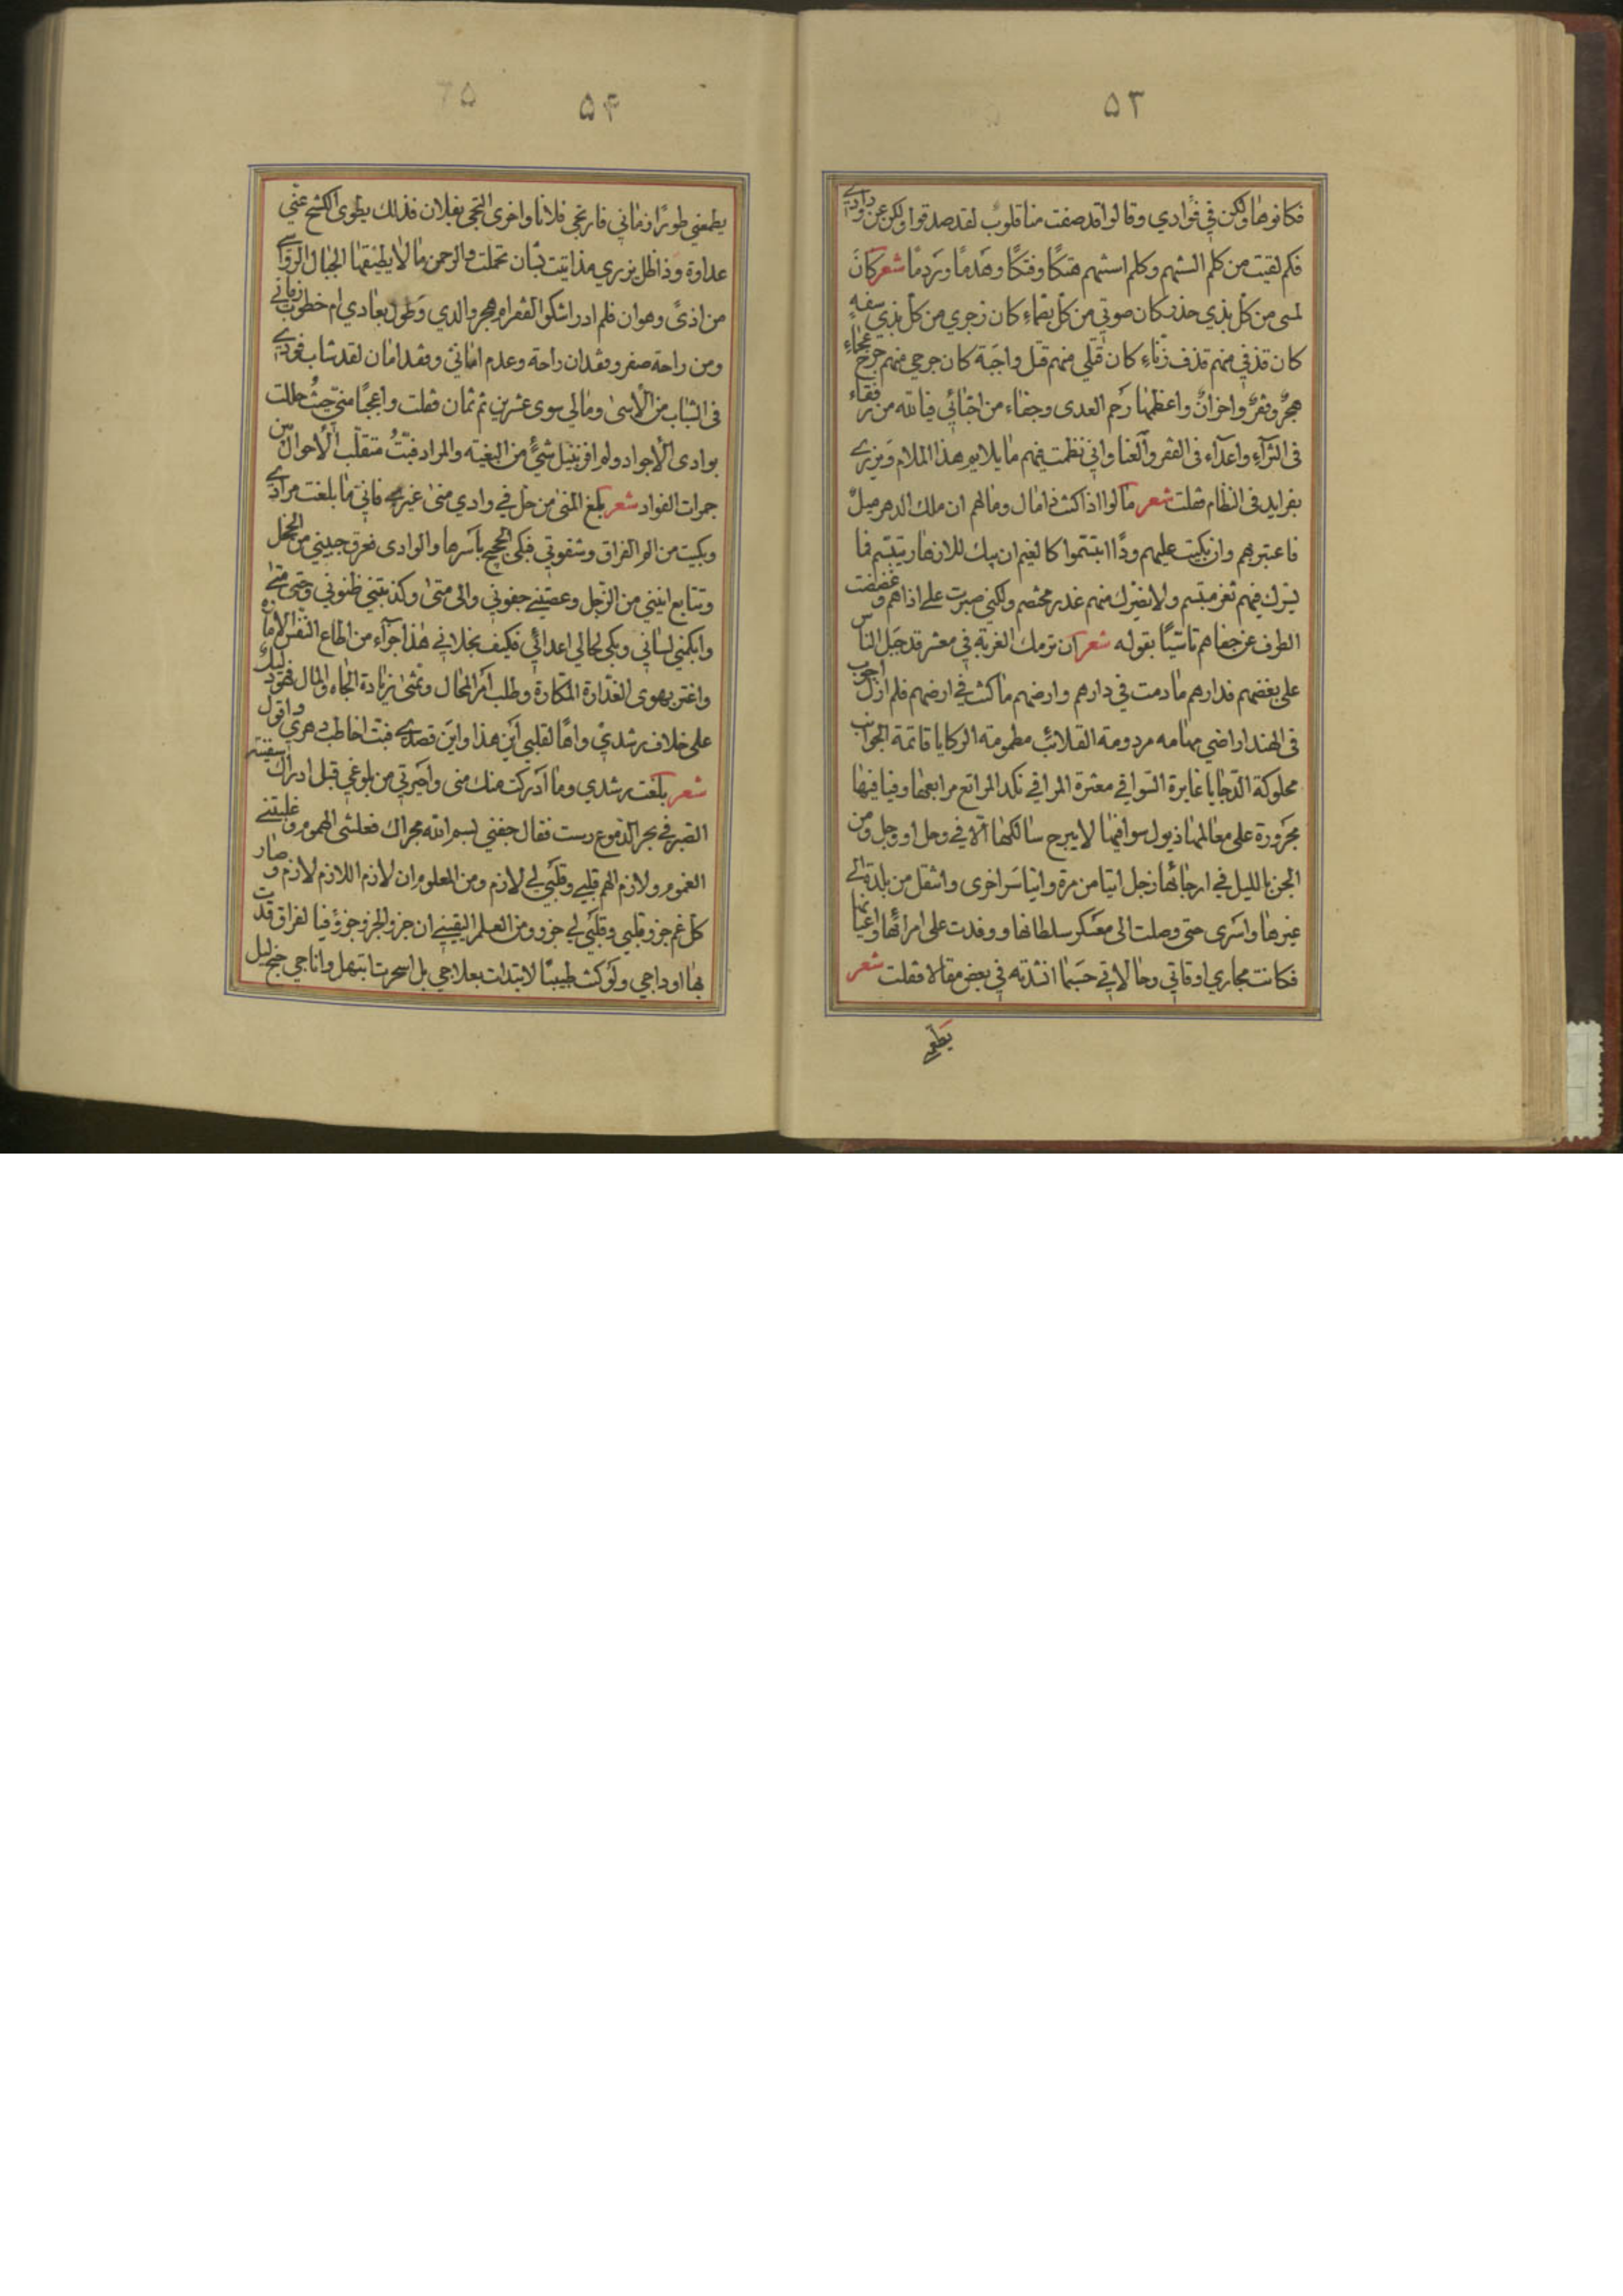 ۵۳
فكانوها ولكن في فؤادي وقالوا قد صفت منا قلوب لقد صدقوا ولكن عن ودادي
فكم لقيت من كلم السنهم وكلم اسنهم هتكًا وفتكًا وهدمًا وردمًا شعر كان
لمسى من كل بذي حذف كان صوتي من كل بغماء كان زجري من كل بذي سفه
كان قذفي منهم قذف زناء كان قتلي منهم قتل واجبة كان جرحي منهم جرح عجماء
هجر وفقر واحزان واعظمها رحم العدى وجفاء من احبائي فيالله من رفقاء
في الثراء واعداء في الفقر والغنا واني نظمت فيهم ما يلايم هذا الملام ويزري
بفرايد في النظام فقلت شعر مالوا اذا كنت ذا مال وما لهم ان ملك الدهر ميل
فاعتبرهم وان بكيت عليهم ودًا ابتسموا كالغيم ان يبك للازهار يبتسم فا
يسرك فيهم ثغر مبتسم ولا يضرك منهم غدر مختصم ولكني صبرت على اذاهم وغضضت
الطرف عن جفاهم تاسيًا بقوله شعر ان ترمك الغربة في معشر قد جبل الناس
على بغضهم فدارهم ما دمت في دارهم وارضهم ما كنت في ارضهم فلم ازل اجوب
في الهند اراضي مهامه مردومة القلائب مطمومة الركايا قاتمة الجوانب
محلوكة الدجايا غابرة السوافي معثرة المراقي نكد المراتع مرابعها وفيافيها
مجرورة على معالمها ذيول سوافيها لا يبرح سالكها الا في وحل او وجل ومن
الجن بالليل في ارجائها زجل ايتامن مرة وايتاسر اخرى وانتقل من بلدة الى
غيرها واسرى حتى وصلت الى معسكر سلطانها ووفدت على امرائها واعيانها
فكانت مجاري اوقاتي وحالاتي حسبما انشدته في بعض مقالا فقلت شعر
يطمعني
۵۴
۲۵
يطمعني طورًا زماني فارتجي فلانا واخرى التجي بفلان فذلك يطوى الكشح عني
عداوة وذا ظل يزري مذ اتيت بشان تحملت والرحمن ما لا يطيقها الجبال الرواسي
من اذىً وهوان فلم ادر اشكو الفقر ام هجر والدي وطول بعادي ام خطوب زماني
ومن راحة صفر وفقدان راحة وعدم اماني وفقد امان لقد شاب فودي
في الشباب من الاسى ومالي سوى عشرين ثم ثمان فقلت واعجبًا مني حيث حللت
بوادى الاجواد ولم افز بنيل شيء من البغيته والمراد فبتّ متقلب الاحوال بين
جمرات الفواد شعر بلغ المنى من حل في وادي منى غيري فاني ما بلغت مرادي
وبكيت من الم الفراق وشقوتي فبكى الحجيج باسرها والوادى فعرق جبيني من الخجل
وتتابع انيني من الزجل وعصتني جفوني والى متى وكذبتني ظنوني وحتى متى
وابكمني لساني وبكى لحالي اعدائي فكيف بخلاني هذا جزاء من اطاع النفس الامارة
واغتر بهوى الغدارة المكارة وطلب امر المحال وتمنى زيادة الجاه والمال فهوذ ليلك
على خلاف رشدي واها لقلبي اين هذا واين قصدي فبت اخاطب دهري واقول
شعر بلغت رشدي وما ادركت منك منى واحيرتي من بلوغي قبل ادراك سفينة
الصبر في بحر الدموع رست فقال جفني بسم الله مجراك فعلتني الهموم وغلبتني
الغموم ولازم الهم قلبي وقلبي لي لازم ومن المعلوم ان لازم اللازم لازم وصار
كل غم جزو قلبي وقلبي لي جزو ومن العلم اليقيني ان جزو الجزو جزوٌ فيا لفراق قدت
بها اوداجي ولو كنت طبيبًا لابتدات بعلاجي بل اسحرت ابتهل واناجي جنح ليل